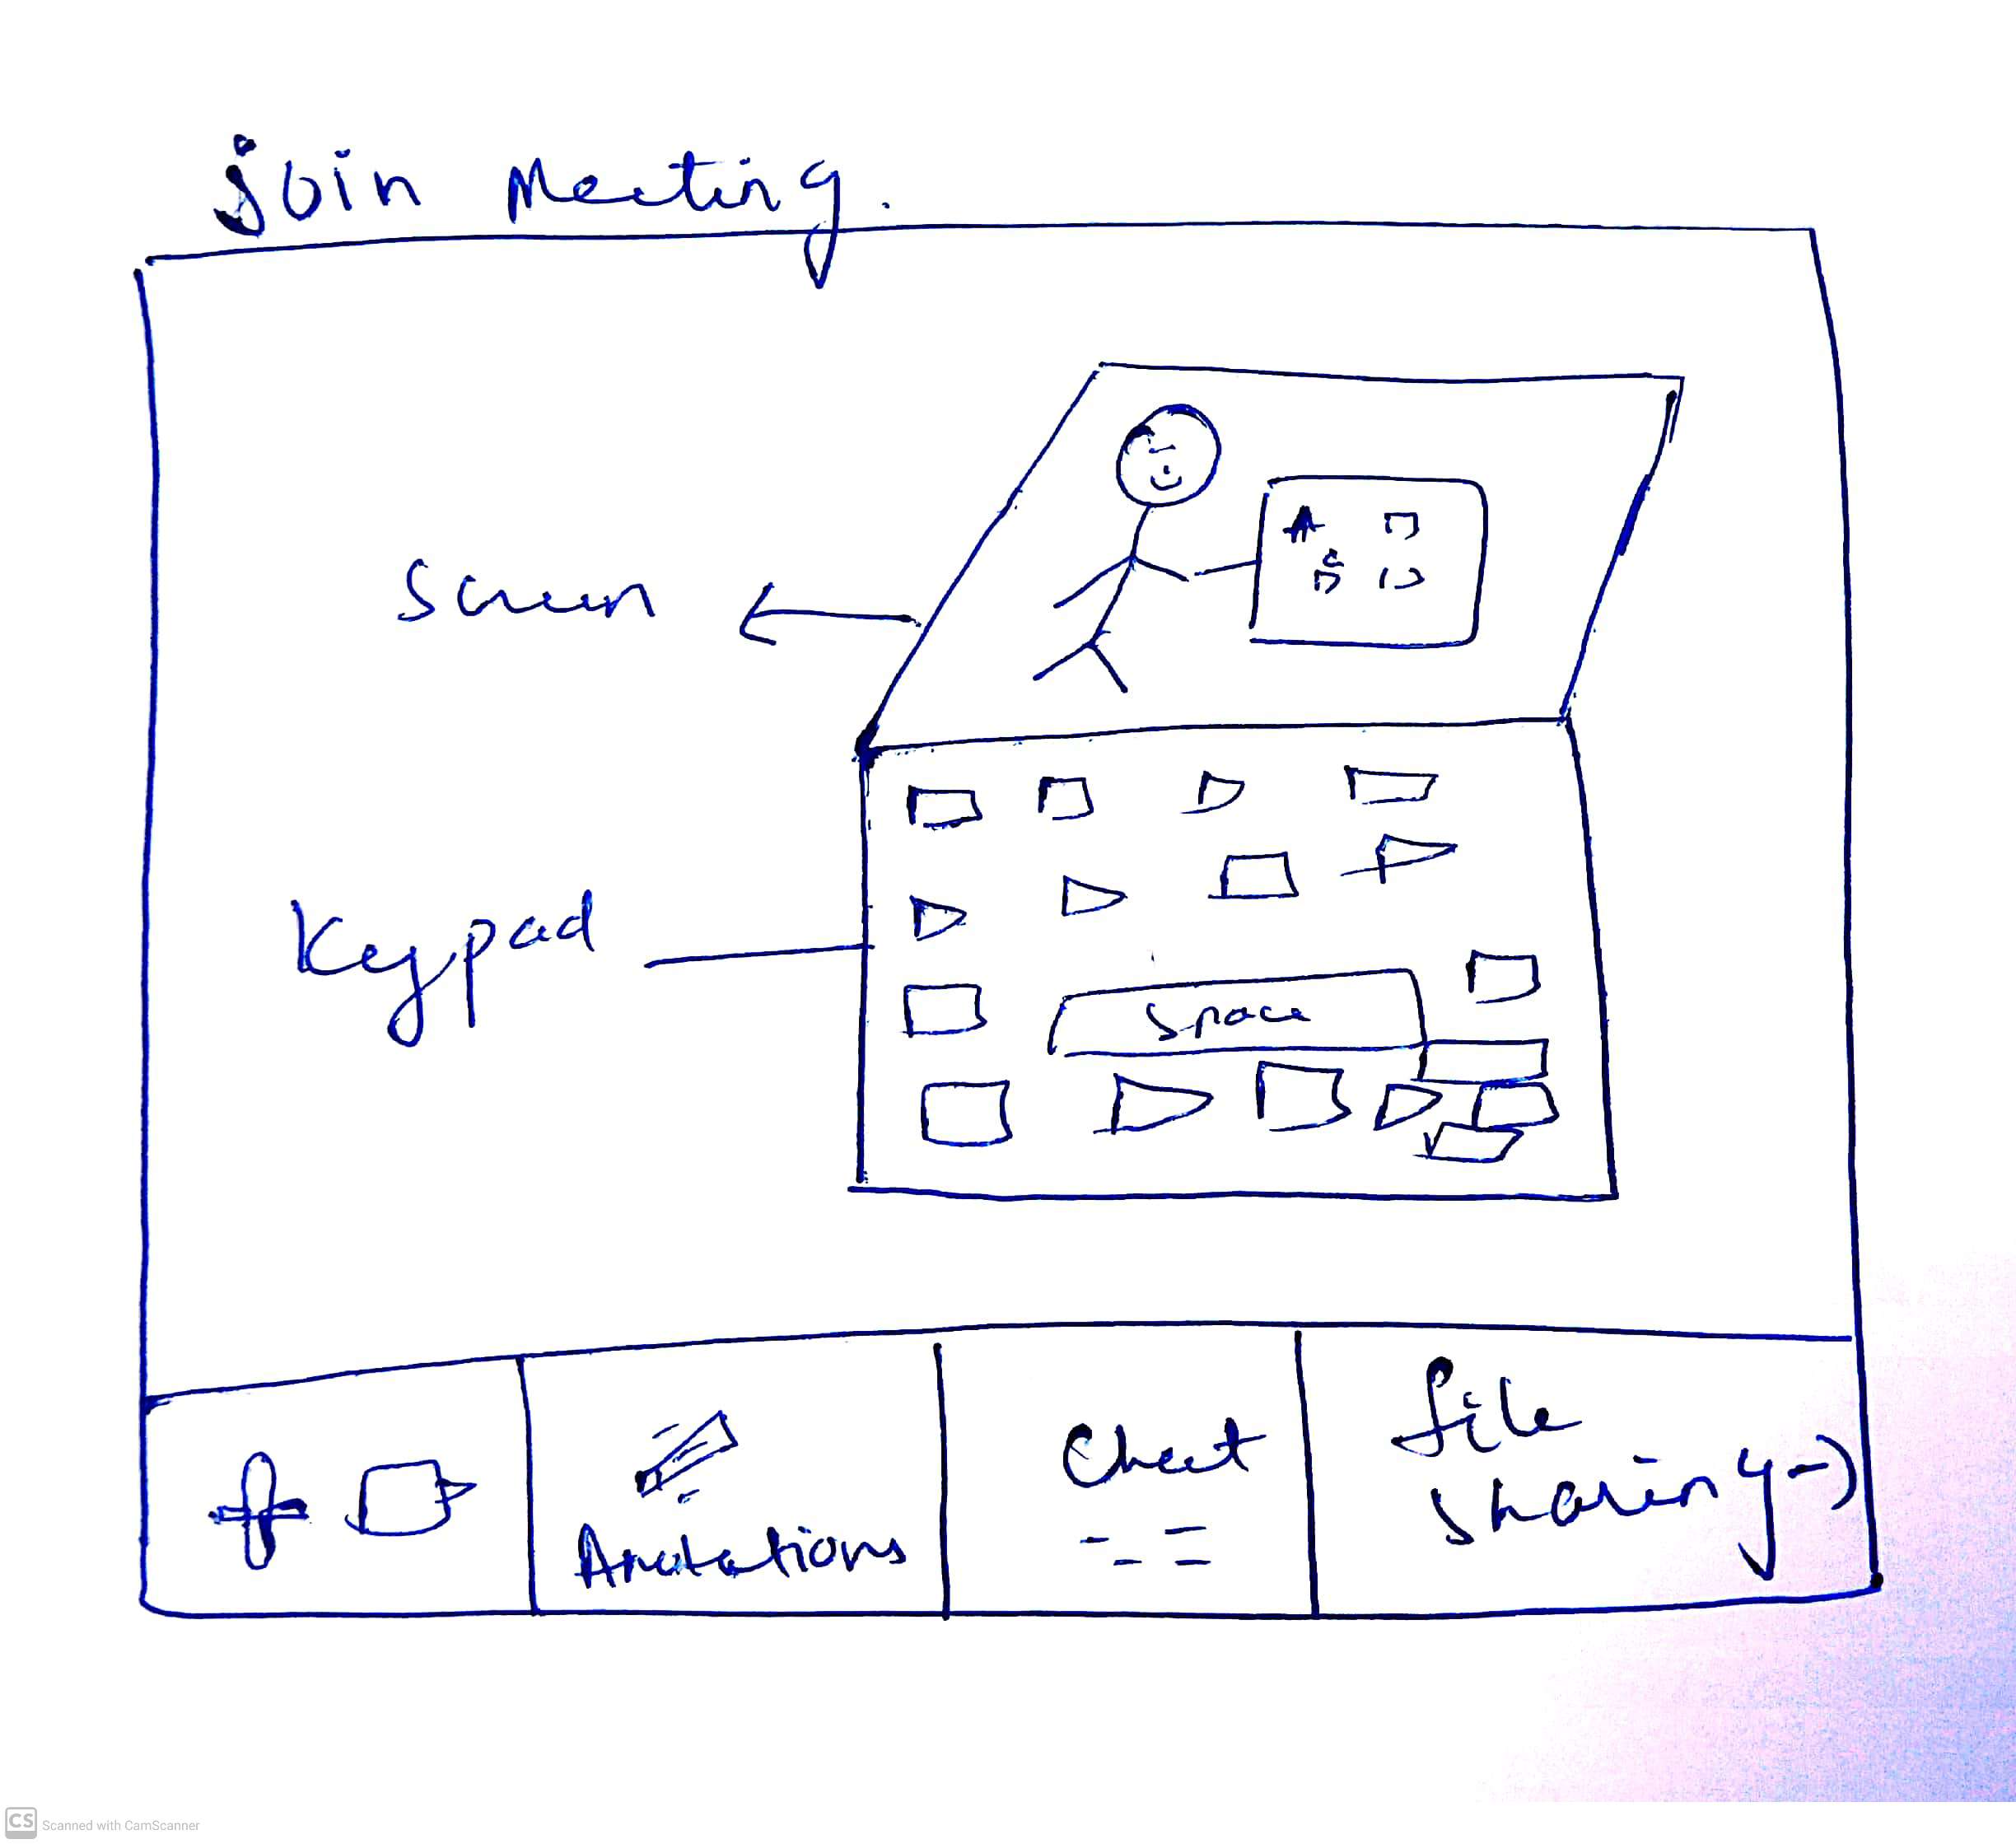 join Meeting.
Screen
Keypad
Space
Anotations
Chat
file
sharing
CS Scanned with CamScanner